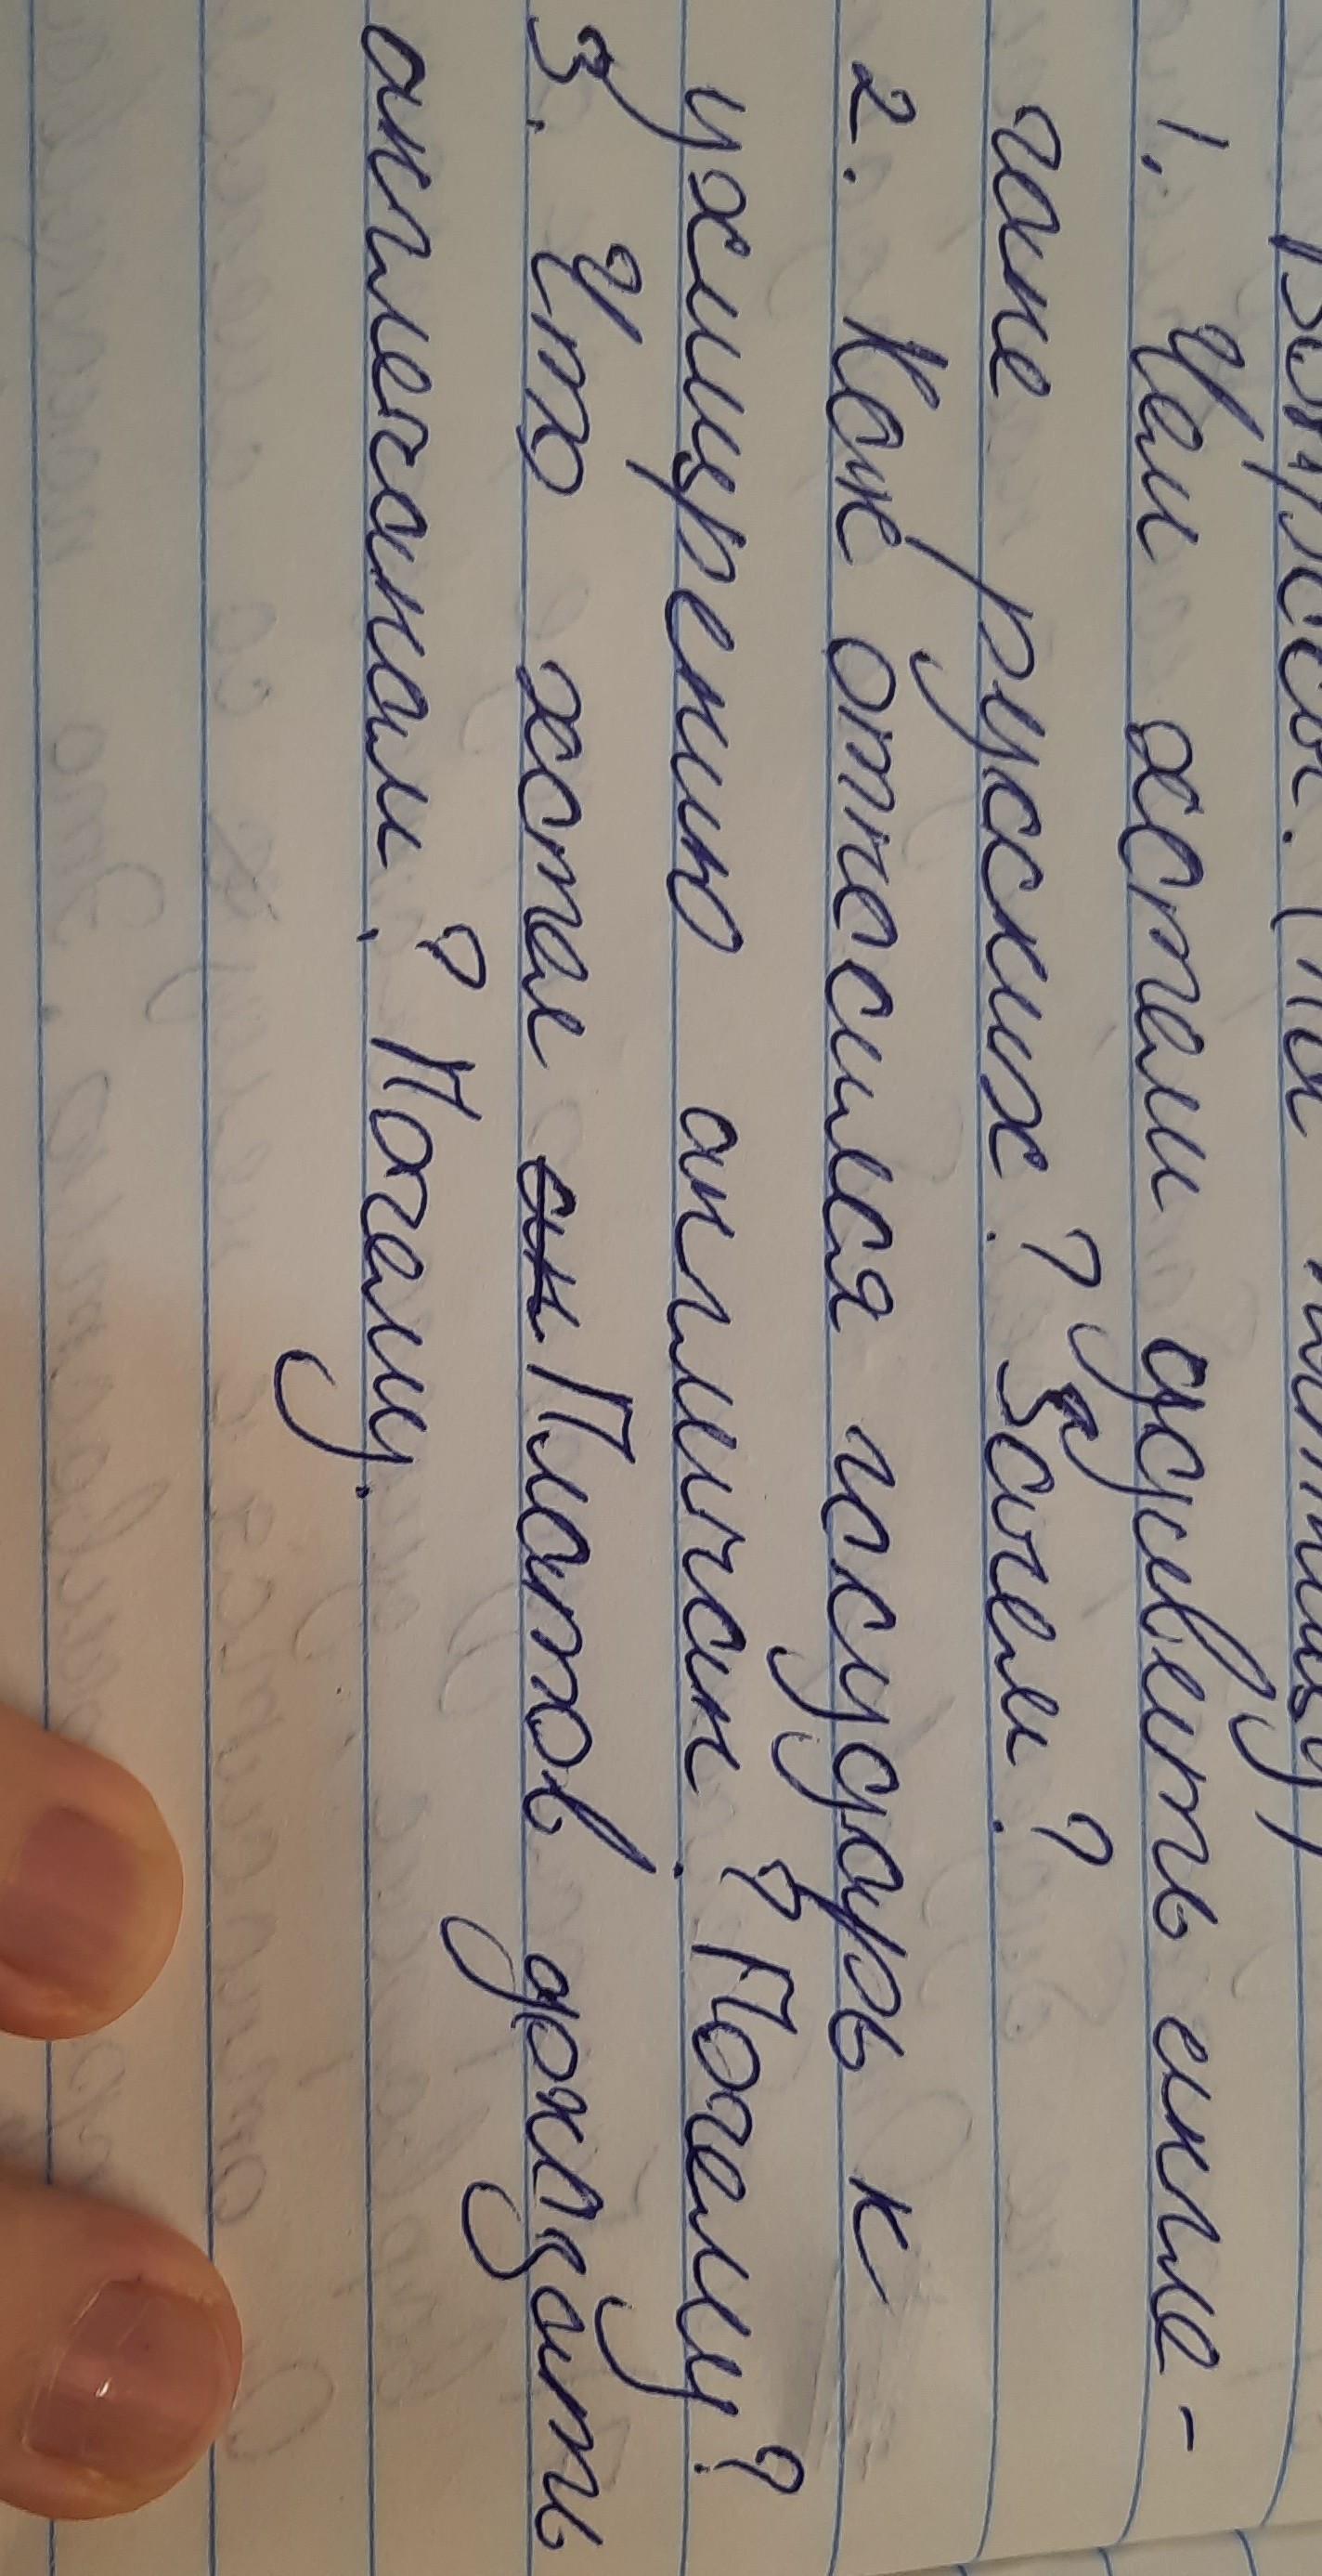 Вопросы. (на пятницу)
1. Чем хотели удивить англи-
чане русских? Зачем?
2. Как относился государь к
ухищрению англичан? Почему?
3. Что хотел Платов доказать
англичанам? Почему.